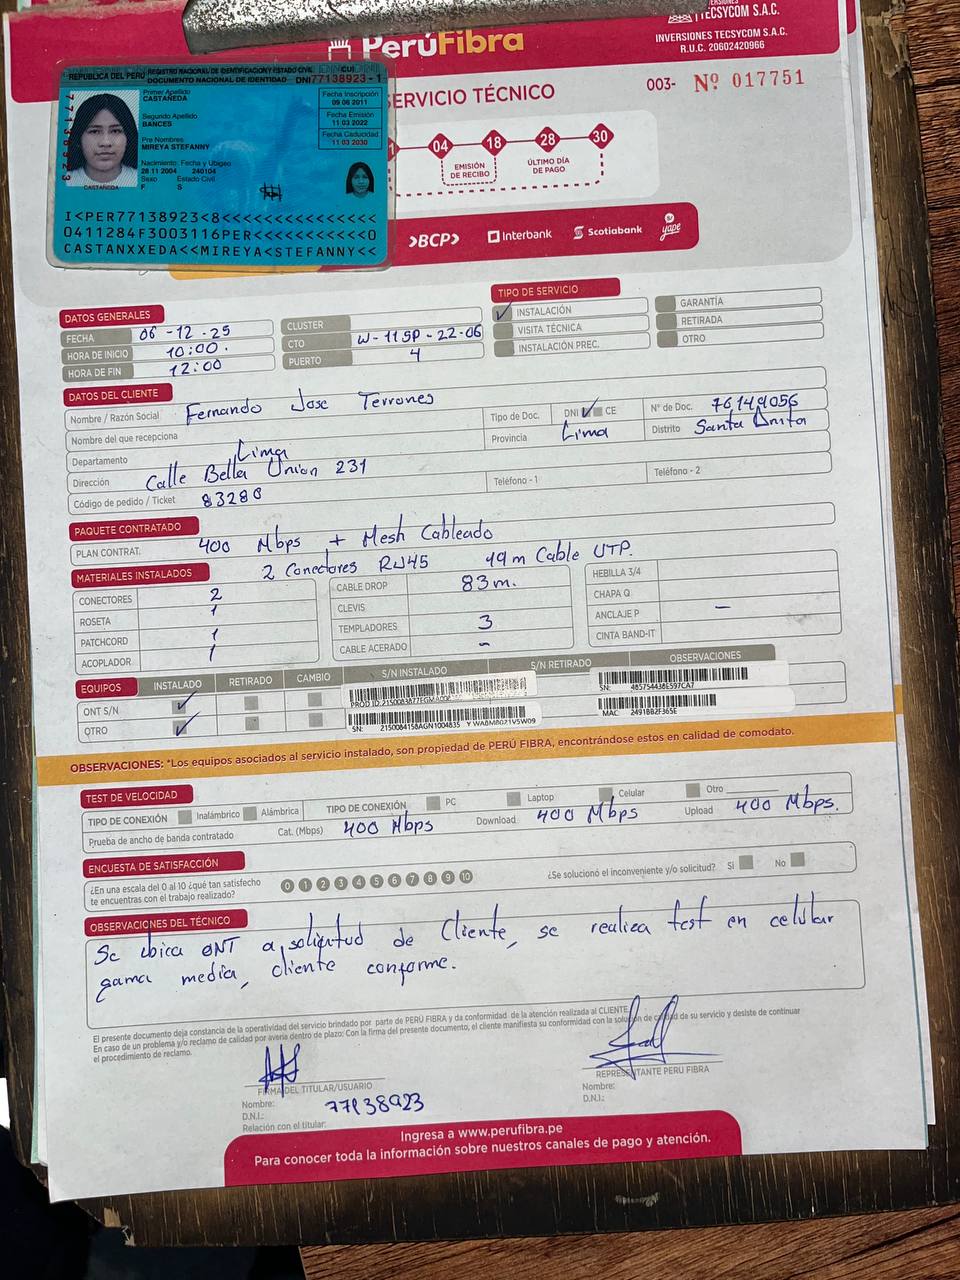 TECSYCOM S.A.C.
INVERSIONES TECSYCOM S.A.C.
R.U.C. 20602420966
PerúFibra
SERVICIO TÉCNICO
003- Nº 017751
REPUBLICA DEL PERÚ REGISTRO NACIONAL DE IDENTIFICACIÓN Y ESTADO CIVIL CUI
DOCUMENTO NACIONAL DE IDENTIDAD DNI 77138923 - 1
Primer Apellido
CASTAÑEDA
Segundo Apellido
BANCES
Pre Nombres
MIREYA STEFANNY
Nacimiento: Fecha y Ubigeo
28 11 2004 240104
Sexo Estado Civil
F S
Fecha Inscripción
09 06 2011
Fecha Emisión
11 03 2022
Fecha Caducidad
11 03 2030
CASTAÑEDA
I<PER77138923<8<<<<<<<<<<<<<<<
0411284F3003116PER<<<<<<<<<<<0
CASTANXXEDA<<MIREYA<STEFANNY<<
04 18 28 30
EMISIÓN DE RECIBO
ÚLTIMO DÍA DE PAGO
BCP Interbank Scotiabank yape
DATOS GENERALES
FECHA 06-12-25
HORA DE INICIO 10:00.
HORA DE FIN 12:00
CLUSTER
CTO W-115P-22-06
PUERTO 4
TIPO DE SERVICIO
INSTALACIÓN
VISITA TÉCNICA
INSTALACIÓN PREC.
GARANTÍA
RETIRADA
OTRO
DATOS DEL CLIENTE
Nombre / Razón Social Fernando Jose Terrones
Tipo de Doc. DNI CE
N° de Doc. 76149056
Nombre del que recepciona
Provincia Lima
Distrito Santa Anita
Departamento Lima
Dirección Calle Bella Union 231
Teléfono - 1
Teléfono - 2
Código de pedido / Ticket 83280
PAQUETE CONTRATADO
PLAN CONTRAT. 400 Mbps + Mesh Cableado
2 Conectores RJ45 49m Cable UTP.
MATERIALES INSTALADOS
CONECTORES 2
ROSETA 1
PATCHCORD 1
ACOPLADOR 1
CABLE DROP 83m.
CLEVIS
TEMPLADORES 3
CABLE ACERADO -
HEBILLA 3/4
CHAPA Q
ANCLAJE P -
CINTA BAND-IT
EQUIPOS INSTALADO RETIRADO CAMBIO S/N INSTALADO S/N RETIRADO OBSERVACIONES
ONT S/N
SN: 485754438E597CA7
OTRO
SN: 2150084158AGN1004835 Y WA8M8021V5W09
MAC: 2491BB2F365E
OBSERVACIONES: *Los equipos asociados al servicio instalado, son propiedad de PERÚ FIBRA, encontrándose estos en calidad de comodato.
TEST DE VELOCIDAD
TIPO DE CONEXIÓN Inalámbrico Alámbrica
TIPO DE CONEXIÓN PC Laptop Celular Otro
Prueba de ancho de banda contratado Cat. (Mbps) 400 Mbps Download 400 Mbps Upload 400 Mbps.
ENCUESTA DE SATISFACCIÓN
¿En una escala del 0 al 10 ¿qué tan satisfecho
te encuentras con el trabajo realizado?
0 1 2 3 4 5 6 7 8 9 10
¿Se solucionó el inconveniente y/o solicitud? Si No
OBSERVACIONES DEL TÉCNICO
Se ubica ONT a solicitud de Cliente, se realiza test en celular
gama media, cliente conforme.
El presente documento deja constancia de la operatividad del servicio brindado por parte de PERÚ FIBRA y da conformidad de la atención realizada al CLIENTE.
En caso de un problema y/o reclamo de calidad por avería dentro de plazo: Con la firma del presente documento, el cliente manifiesta su conformidad con la solución de calidad de su servicio y desiste de continuar
el procedimiento de reclamo.
FIRMA DEL TITULAR/USUARIO
Nombre:
D.N.I.: 77138923
Relación con el titular:
REPRESENTANTE PERÚ FIBRA
Nombre:
D.N.I.:
Ingresa a www.perufibra.pe
Para conocer toda la información sobre nuestros canales de pago y atención.